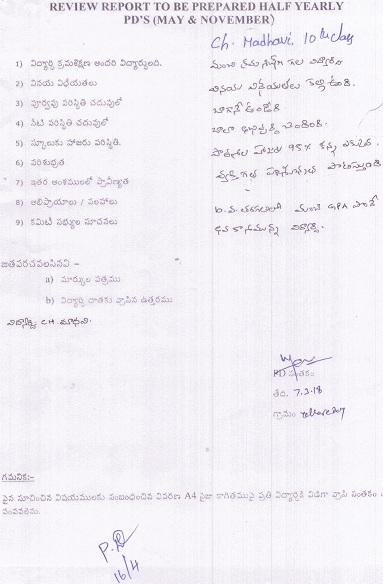 REVIEW REPORT TO BE PREPARED HALF YEARLY
PD'S (MAY & NOVEMBER)
Ch. Madhavi. 10th class
1) విద్యార్థి క్రమశిక్షణ అందరి విద్యార్థులది. మంచి క్రమశిక్షణ గల విద్యార్థిని
2) వినయ విధేయతలు వినయ విధేయతలు కల్గి ఉంది.
3) పూర్వపు పరిస్థితి చదువులో బాగానే ఉండేది
4) నేటి పరిస్థితి చదువులో చాలా అభివృద్ధి చెందింది.
5) స్కూలుకు హాజరు పరిస్థితి. పాఠశాల హాజరు 95% కన్న ఎక్కువ.
6) పరిశుభ్రత వ్యక్తిగత పరిశుభ్రత పాటిస్తుంది
7) ఇతర అంశములలో ప్రావీణ్యత
8) అభిప్రాయాలు / సలహాలు 10వ తరగతిలో మంచి GPA
9) కమిటీ సభ్యుల సూచనలు విద్యార్థిని.
జతపరచవలసినవి –
a) మార్కుల పత్రము
b) విద్యార్థి దాతకు వ్రాసిన ఉత్తరము
విద్యార్థిని CH మాధవి.
PD సంతకం
తేది. 7.3.18
గ్రామం
గమనిక:-
పైన సూచించిన విషయములకు సంబంధించిన వివరణ A4 సైజు కాగితముపై ప్రతి విద్యార్థికి విడిగా వ్రాసి సంతకం
పంపవలెను.
16/4